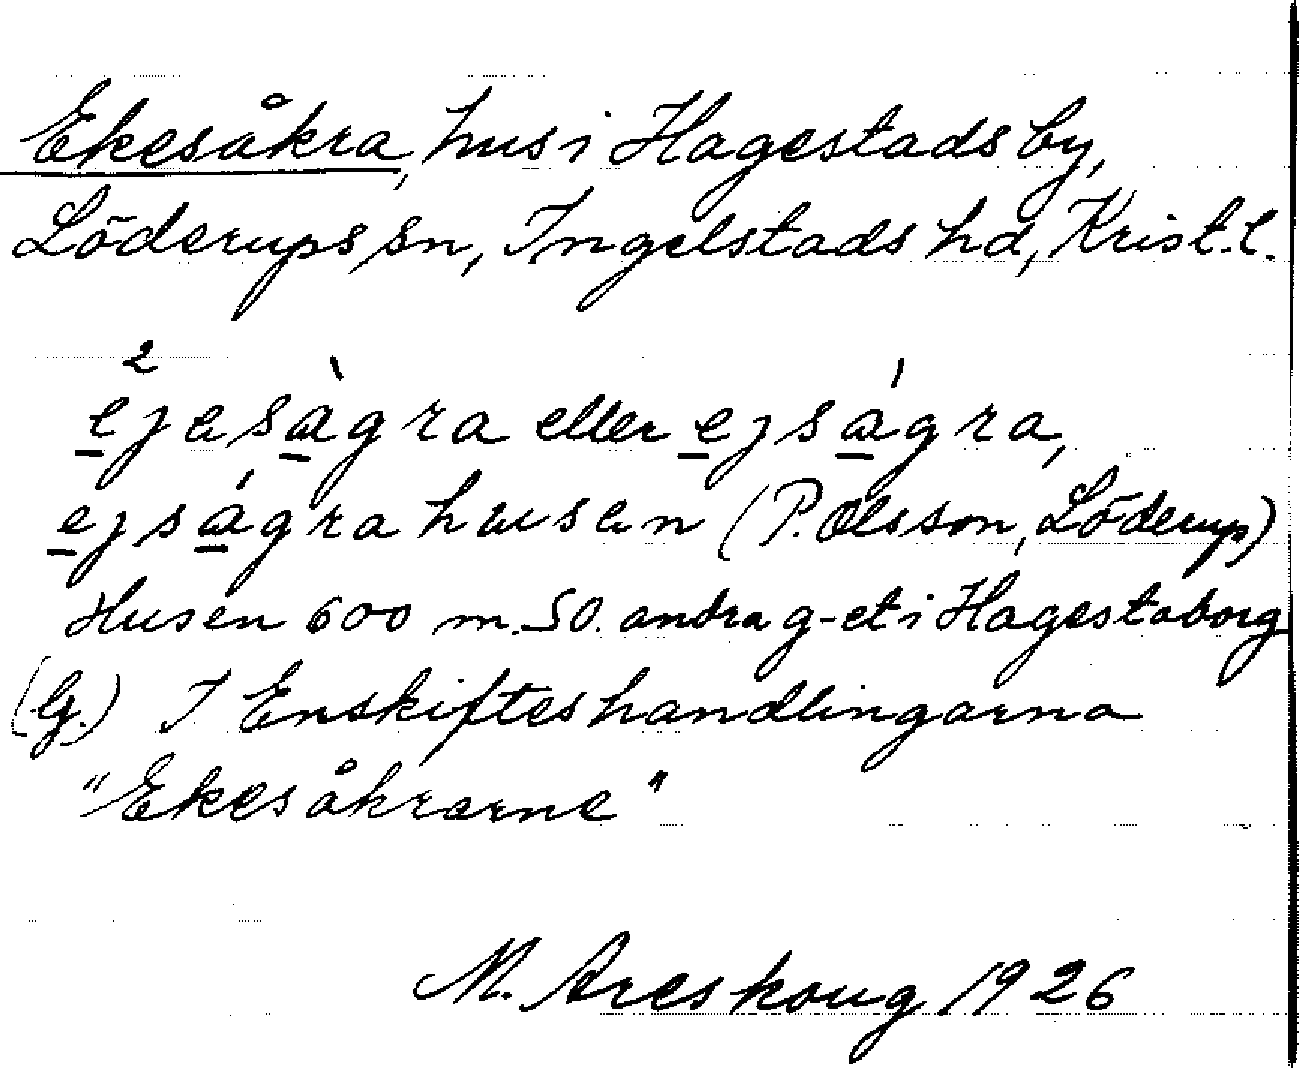 Ekesåkra, hus i Hagestads by,
Löderups sn, Ingelstads hd, Krist. l.
2
ejesàgra eller ejságra,
ejságrahusen (P. Olsson, Löderup)
Husen 600 m. SO. andra g-et i Hagestaborg
(G.) I Enskifteshandlingarna
"Ekesåkrarne"
M. Areskoug 1926